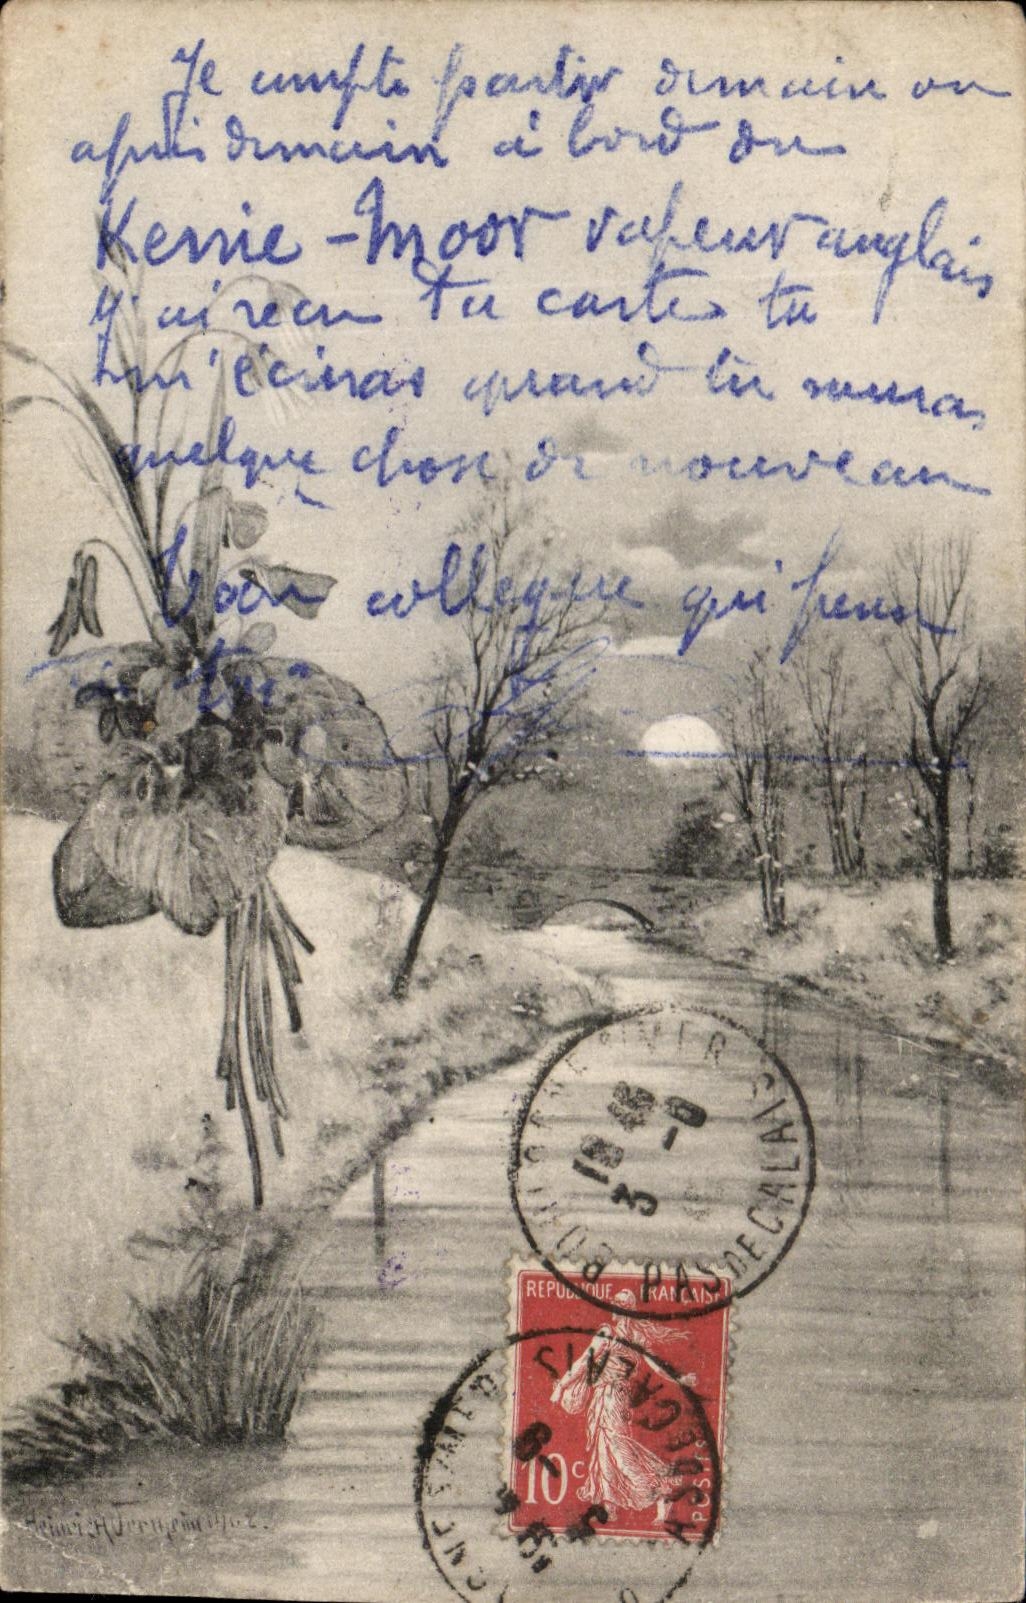 Je compte partir demain ou
après demain à bord du
Kerrie-Moor vapeur anglais
J'ai recu ta carte tu
m'écriras quand tu sauras
quelque chose de nouveau
Ton collegue qui pense
à toi
BOULOGNE S/MER
PAS DE CALAIS
18 45
3 - 9
REPUBLIQUE FRANÇAISE
10c
POSTES
PAS DE CALAIS